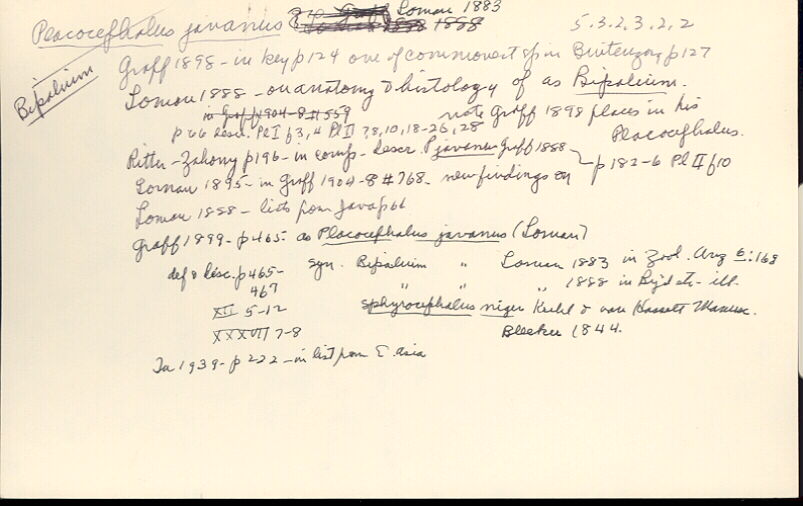 Placocephalus javanus Loman 1883 5.3.2,3,2,2
Bipalium
Graff 1898 - in key p124 one of commonest sp in Buitenzorg p127
Loman 1888 - on anatomy & histology of as Bipalium.
in Graf 1904-8 #559 note Graff 1898 places in his
p66 desc. Pl I f3,4 Pl II 7,8,10,18-26,28 Placocephalus.
Ritter-Zahony p196 - in comp - descr. P javanus Graff 1888
p 182-6 Pl II f10
Loman 1895 - in Graff 1904-8 #768 - new findings on
Loman 1888 - lists from Java p66
Graff 1899 - p465 as Placocephalus javanus (Loman)
def & desc. p465- syn. Bipalium " Loman 1883 in Zool. Anz 6:168
467 " " " 1888 in Bijdr - ill.
XII 5-12 Sphyrocephalus niger Kuhl & van Hasselt
XXXVII 7-8 Bleeker 1844.
1939 - p222 - in list from E. Asia